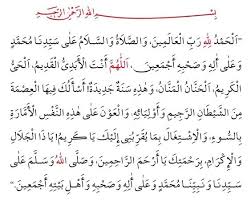 بِسْمِ اللهِ الرَّحْمٰنِ الرَّحِيمِ
"اَلْحَمْدُ لِلّٰهِ رَبِّ الْعَالَمِينَ، وَالصَّلَاةُ وَالسَّلَامُ عَلٰى سَيِّدِنَا مُحَمَّدٍ
وَعَلٰى أٰلِهِ وَصَحْبِهِ أَجْمَعِينَ. اَللّٰهُمَّ أَنْتَ الْأَبَدِيُّ الْقَدِيمُ، اَلْحَيُّ
الْكَرِيمُ، اَلْحَنَّانُ الْمَنَّانُ، وَهٰذِهِ سَنَةٌ جَدِيدَةٌ أَسْأَلُكَ فِيهَا الْعِصْمَةَ
مِنَ الشَّيْطَانِ الرَّجِيمِ وَأَوْلِيَائِهِ، وَالْعَوْنَ عَلٰى هٰذِهِ النَّفْسِ الْأَمَّارَةِ
بِالسُّوءِ، وَالْإِشْتِغَالَ بِمَا يُقَرِّبُنِي إِلَيْكَ يَا كَرِيمُ! يَا ذَا الْجَلَالِ
وَالْإِكْرَامِ، بِرَحْمَتِكَ يَا أَرْحَمَ الرَّاحِمِينَ، وَصَلَّى اللهُ وَسَلَّمَ عَلٰى
سَيِّدِنَا وَنَبِيِّنَا مُحَمَّدٍ وَعَلٰى أٰلِهِ وَصَحْبِهِ وَأَهْلِ بَيْتِهِ أَجْمَعِينَ."